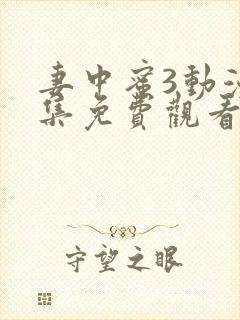 妻中蜜3動漫
集免費觀看
守望之眼